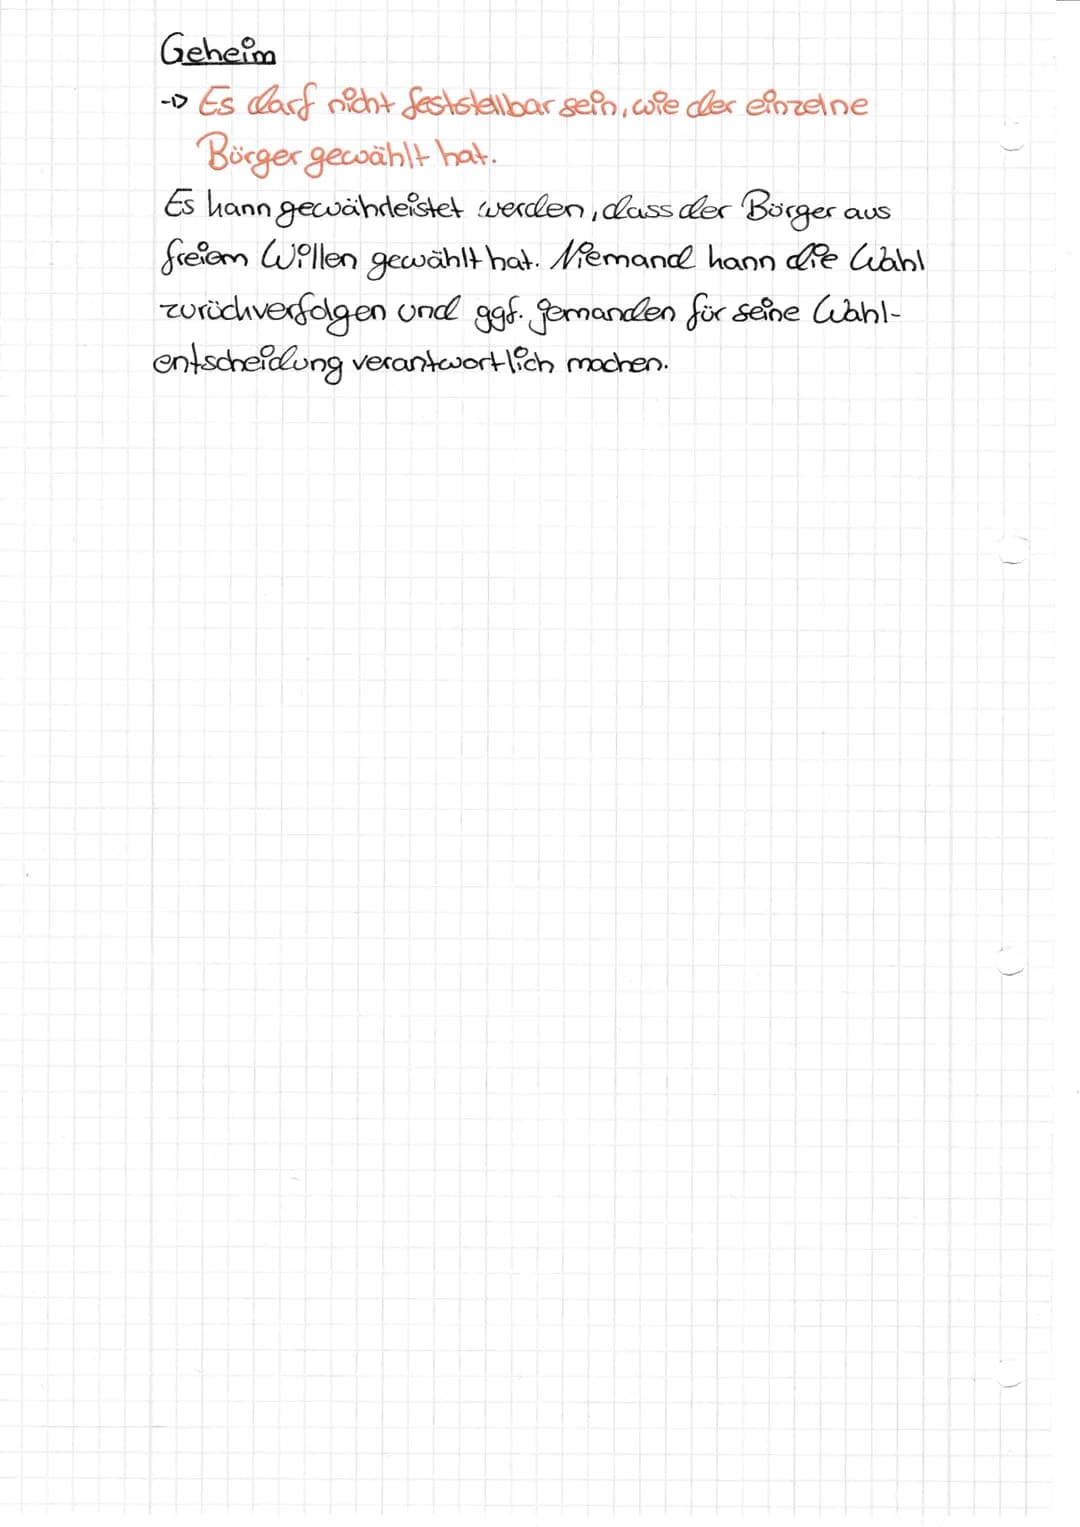 Geheim
→ Es darf nicht feststellbar sein, wie der einzelne
Bürger gewählt hat.
Es kann gewährleistet werden, dass der Bürger aus
freiem Willen gewählt hat. Niemand kann die Wahl
zurückverfolgen und ggf. jemanden für seine Wahl-
entscheidung verantwortlich machen.